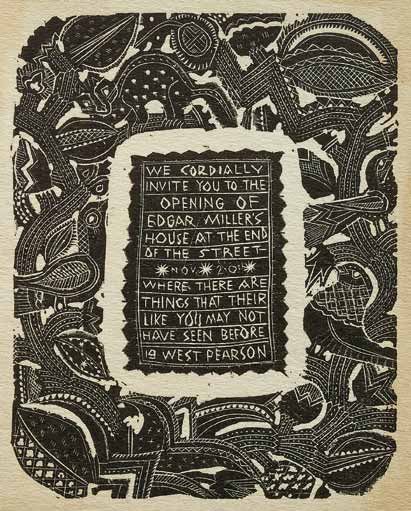 WE CORDIALLY
INVITE YOU TO THE
OPENING OF
EDGAR MILLER'S
HOUSE AT THE END
OF THE STREET-
NOV.
WHERE THERE ARE
THINGS THAT THEIR
LIKE YOU MAY NOT
HAVE SEEN BEFORE
19 WEST PEARSON